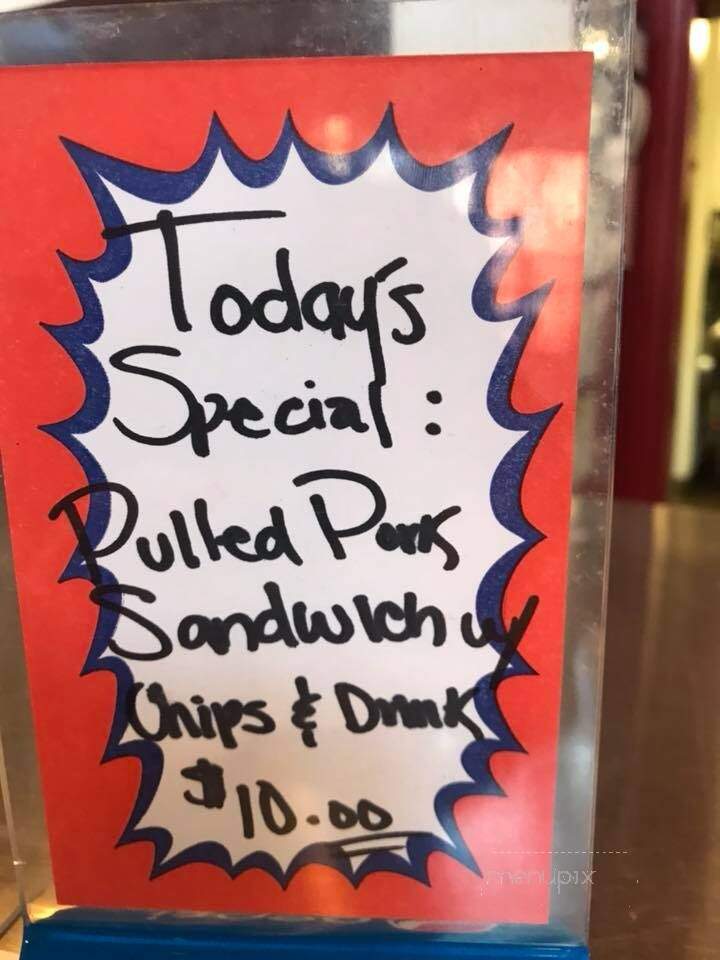 Today's
Special:
Pulled Pork
Sandwich w/
Chips & Drink
$10.00
menupix